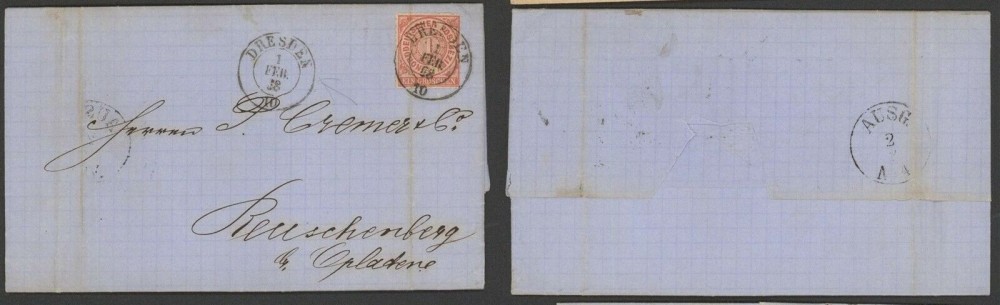 DRESDEN
1
FEB.
68
10
DRESDEN
1
FEB.
68
10
Herren P. Cremer & Co.
Reuschenberg
b. Opladene
AUSG.
2